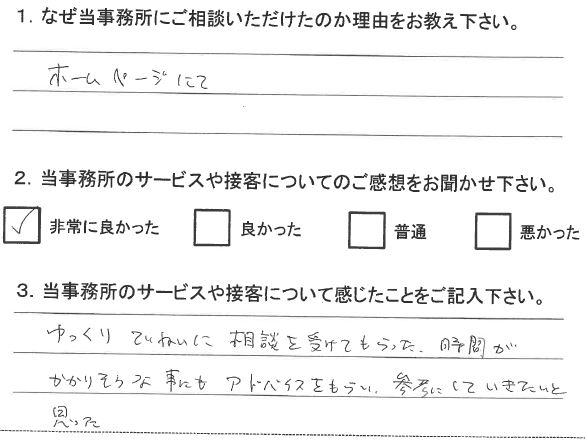 1. なぜ当事務所にご相談いただけたのか理由をお教え下さい。
ホームページにて
2. 当事務所のサービスや接客についてのご感想をお聞かせ下さい。
非常に良かった 良かった 普通 悪かった
3. 当事務所のサービスや接客について感じたことをご記入下さい。
ゆっくりていねいに相談を受けてもらった。時間が
かかりそうな事にもアドバイスをもらい、参考にしていきたいと
思った